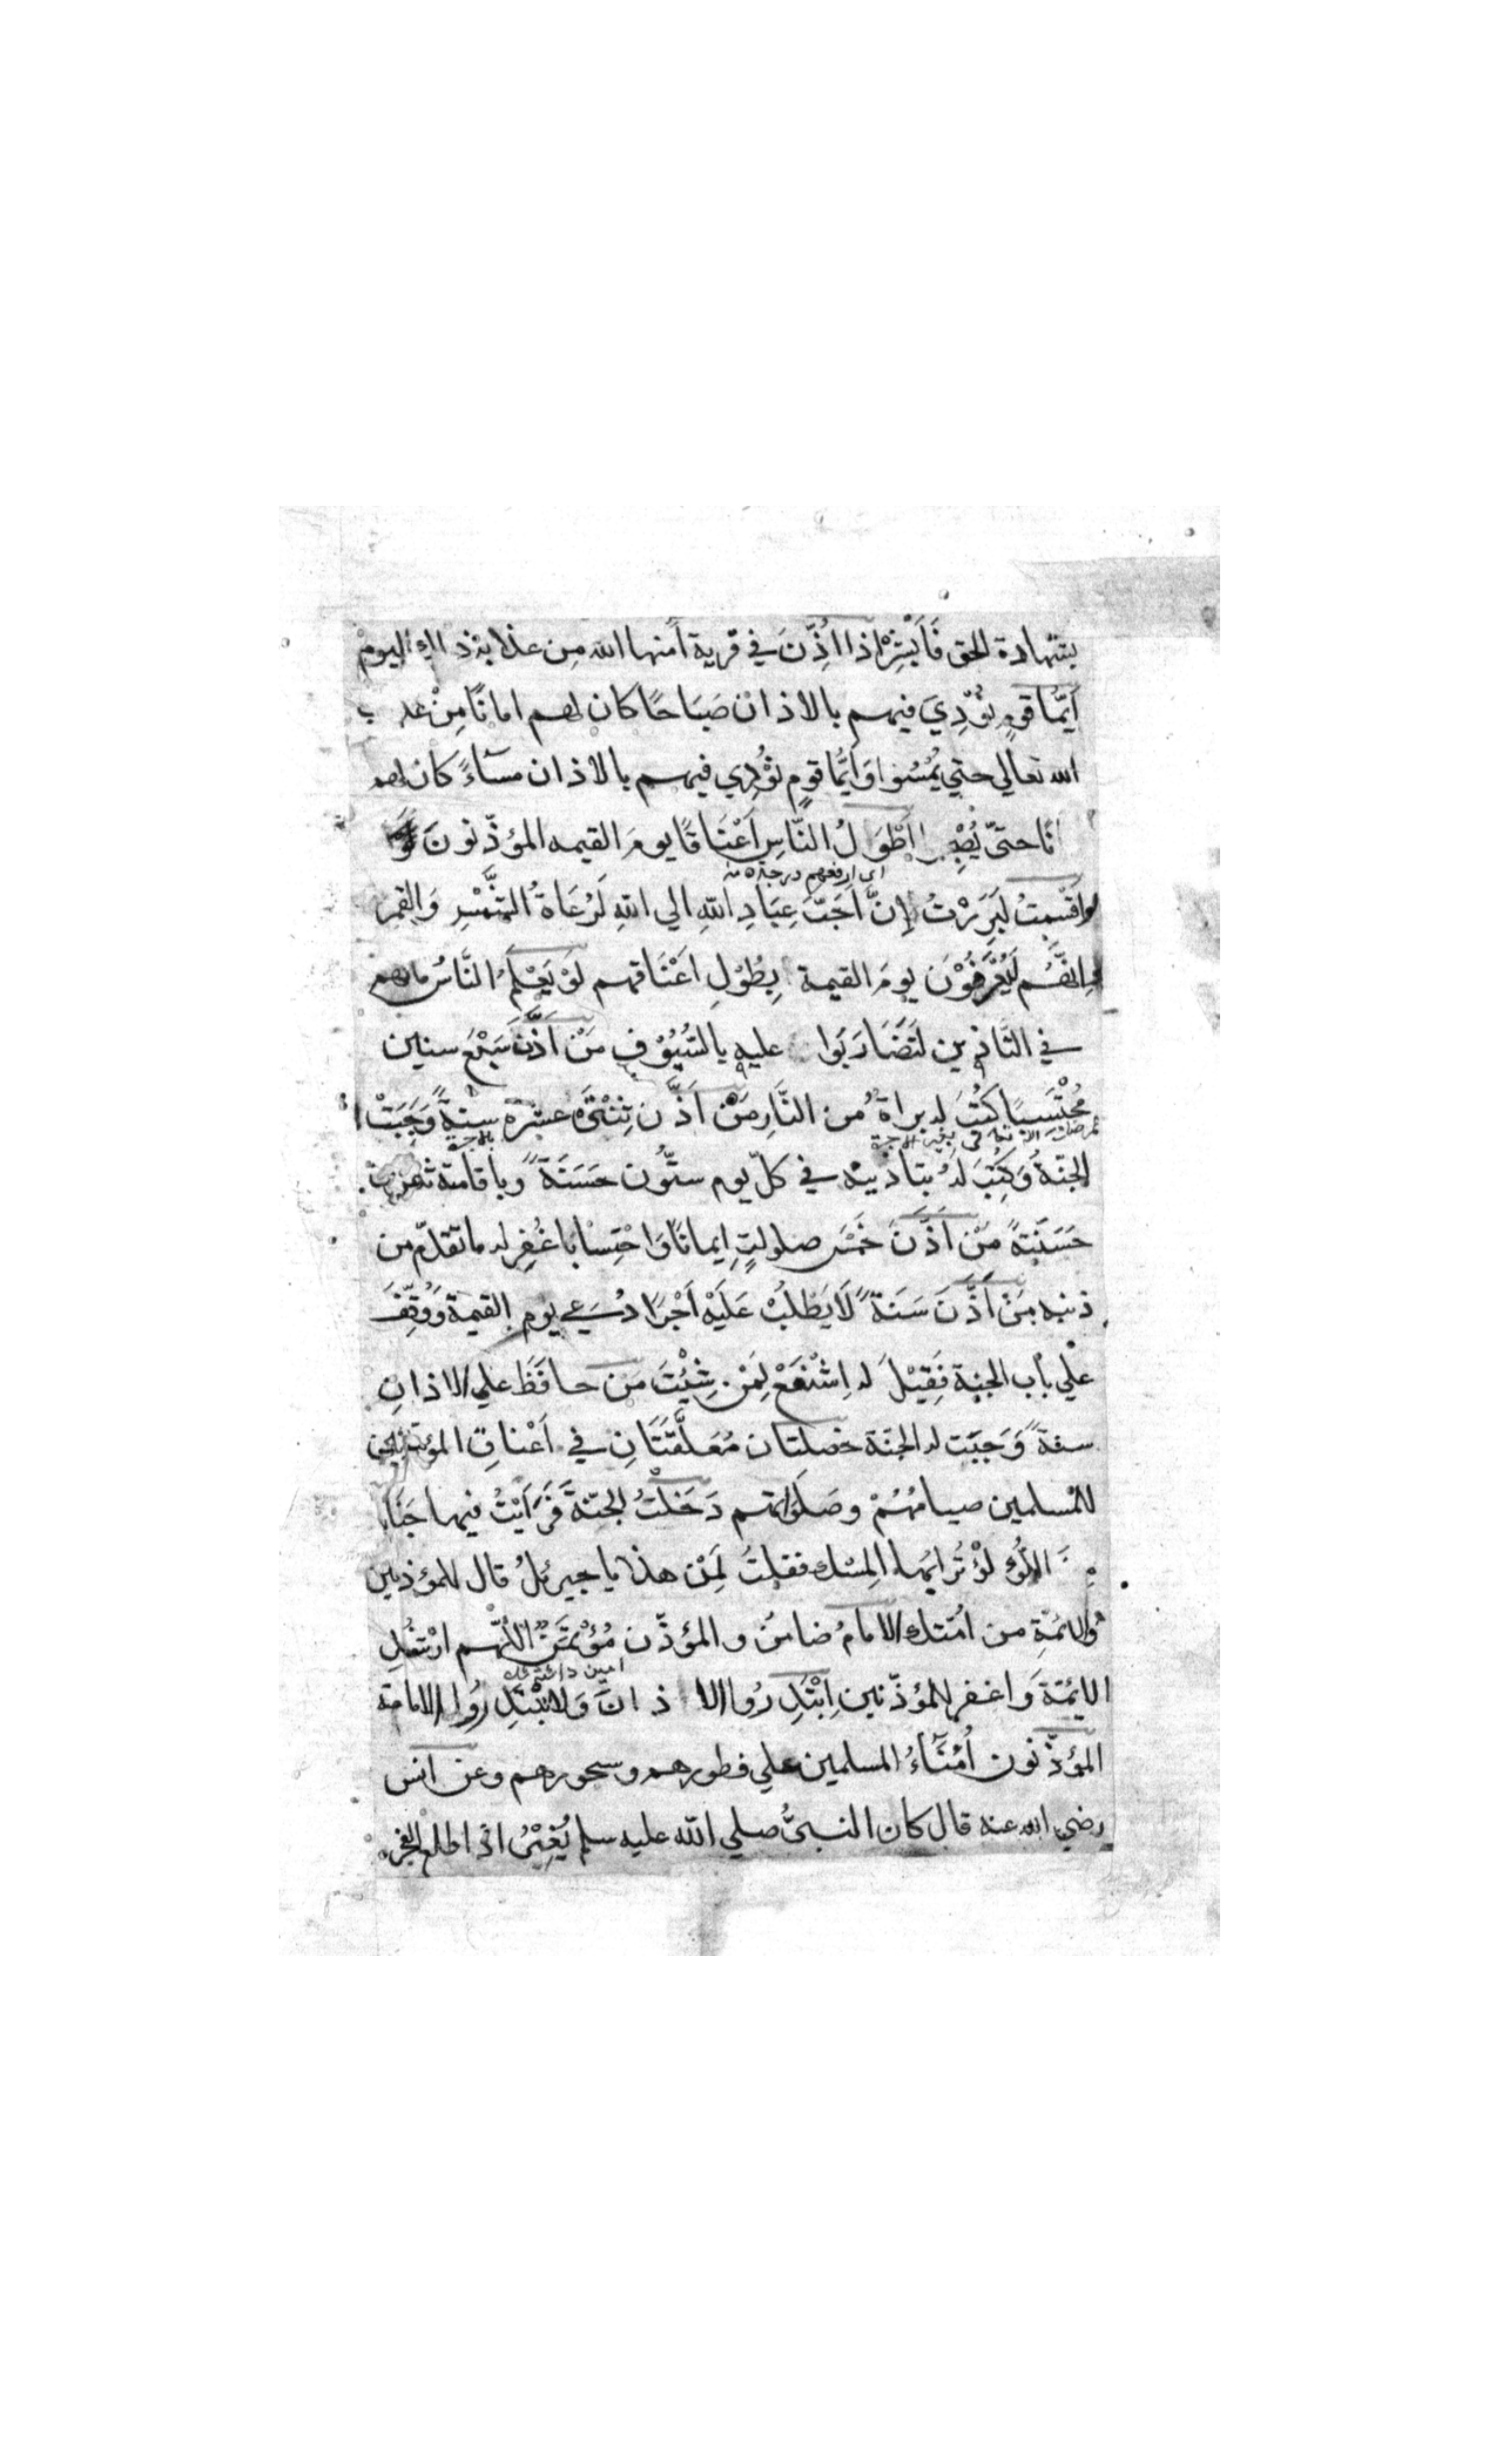 بشهادة الحق فَاَبْشِرْ اذا اُذِّنَ في قرية اٰمنها الله مِن عذابه ذلك اليوم
اَيُّمَا قومٍ نُوْدِيَ فيهم بالاذان صَبَاحًا كان لهم امانًا مِنْ
الله تعالي حتي يُمْسُوا وَاَيُّمَا قومٍ نُوْدِي فيهم بالاذان مسَاءً كان لهم
انًا حتيّ اَطْوَلُ النَّاسِ اَعْنَاقًا يومَ القيمه المؤذّنونَ
اي ارفعهم درجة
لو اَقْسَمْتُ لَبَرَرْتُ اِنَّ اَحَبَّ عِبَادِ اللهِ الي اللهِ لَرُعَاةُ الشَّمْسِ وَالقمر
وانهُّم لَيُعْرَفُوْن يومَ القيمة بِطُوْلِ اَعْنَاقهم لَوْ يَعْلَمُ النَّاسُ مالهم
في التَّاذين لَتَضَارَبَوا عليه بالسُّيُوْفِ مَنْ اَذَّنَ سَبْعَ سنين
مُحْتَسِبًا كُتُبَ له براةٌ من النَّارِ مَنْ اَذَّن ثِنْتَي عشرة سنةً وَجَبَتْ
الجنّةُ وَكُتِبَ لَهُ بتاذينه في كلّ يوم ستُّون حَسَنَةً وباقامته
حَسَنَةً مَنْ اَذَّنَ خَمْسَ صلوات اِيمانًا وَاحْتِسْابًا غُفِر له ما تقدّم من
ذنبه مَنْ اَذَّنَ سَنَةً لَا يَطْلُبُ عَلَيْه اَجْرًا دُعي يوم القيمة وَوُقِّفَ
علي باب الجنة فَقِيْلَ له اِشْفَعْ لِمَنْ شِئْتَ مَن حافَظَ علي الاذانِ
سنةً وَجَبَت له الجنّة خصلتان مُعَلَّقَتَانِ في اَعْناقِ المؤذنين
للمُسلمين صيامُهُمْ وصَلَوتهم دَخَلْتُ الجنّةَ فَرَاَيْتُ فيها
اللُّؤْلُؤ تُرابُها المِسْك فقلتُ لِمَنْ هذا يا جبرئلُ قال للمؤذنين
والائمّةِ من امُتك الامامُ ضامنٌ والمؤذّن مُؤْتَمَنٌ اللّهم ارْشُدِ
امين
الايمّةَ وَاغفر للمؤذّنين اِبْتَدِرُوا الاذانَ وَلا تَبْتَدِرُوا الامامة
المؤذّنون اُمَنَاءُ المسلمين علي فطورهم وسحورهم وعن انس
رضي الله عنه قال كان النبيُّ صلي الله عليه سلم يُغِيْرُ اذا طلع الفجر